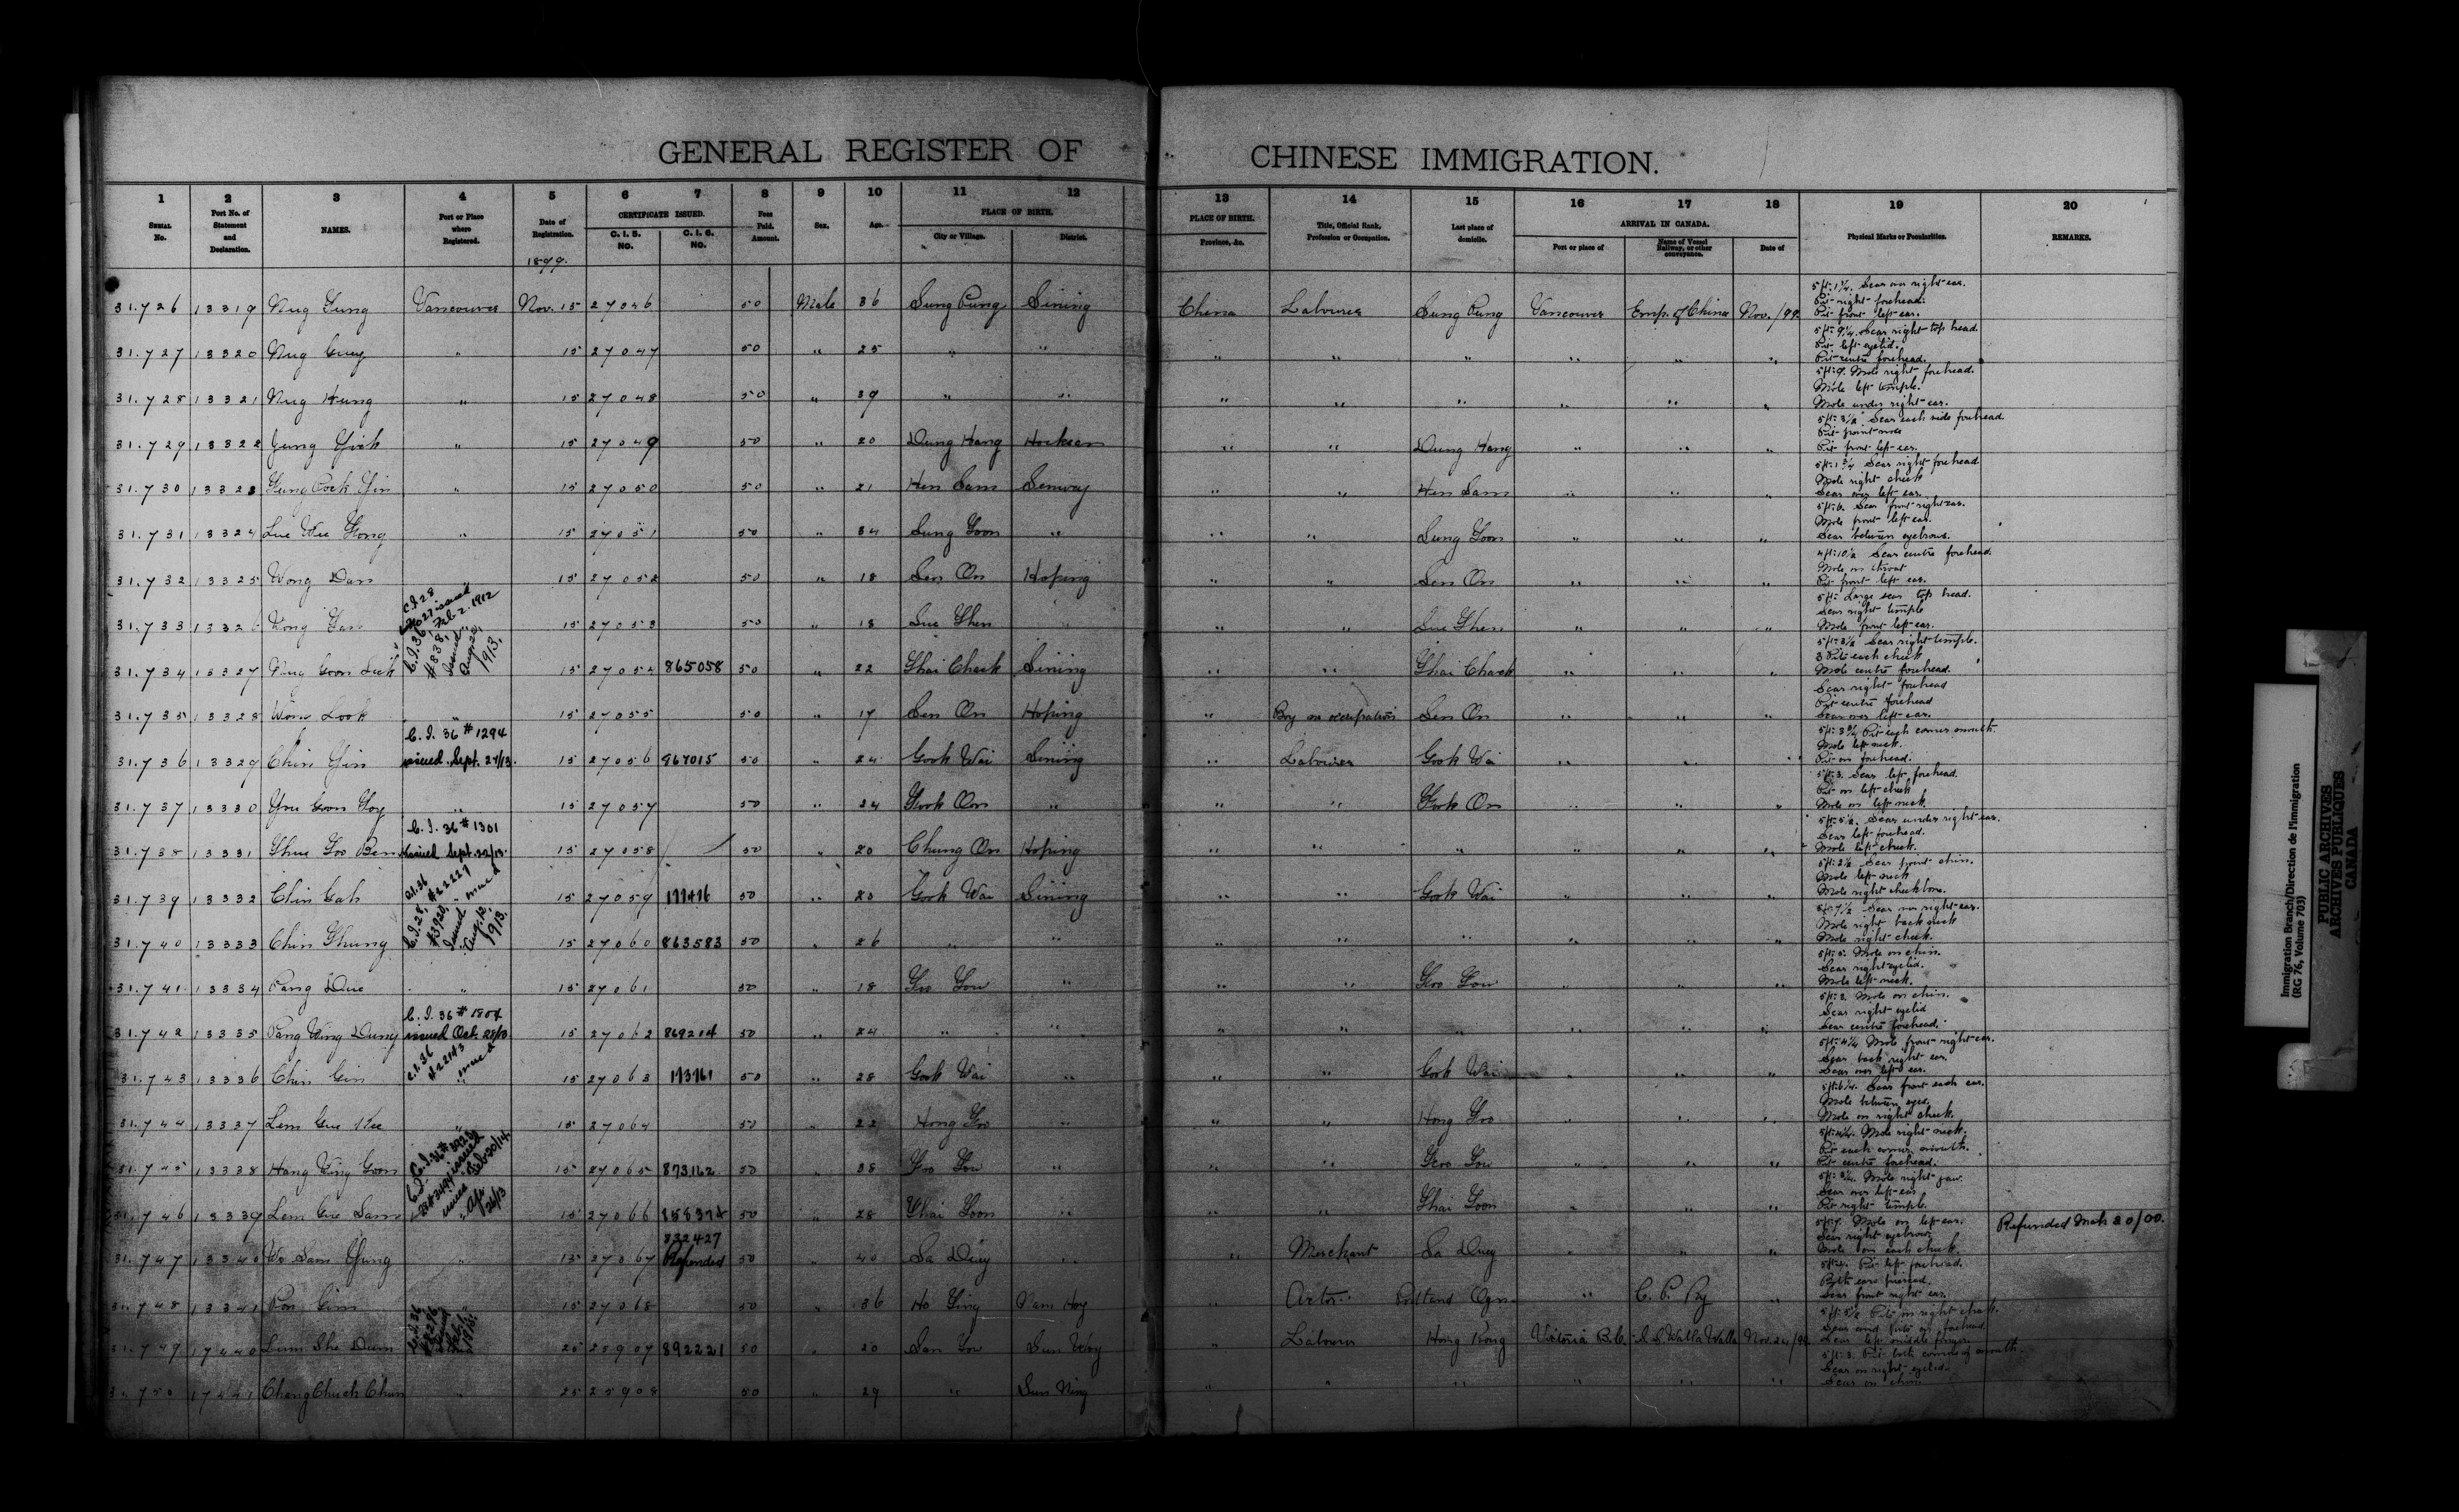 GENERAL REGISTER OF CHINESE IMMIGRATION.
1 2 3 4 5 6 7 8 9 10 11 12 13 14 15 16 17 18 19 20
SERIAL No. Port No. of Statement and Declaration. NAMES. Port or Place where Registered. Date of Registration. CERTIFICATE ISSUED. C. I. 5. NO. C. I. 6. NO. Fees Paid. Amount. Sex. Age. PLACE OF BIRTH. City or Village. District. PLACE OF BIRTH. Province, &c. Title, Official Rank, Profession or Occupation. Last place of domicile. ARRIVAL IN CANADA. Port or place of Name of Vessel Railway, or other conveyance. Date of Physical Marks or Peculiarities. REMARKS.
1899.
31.726 13319 Vancouver Nov. 15 27046 50 Male 36 Sung Pung Sining China Labourer Sung Pung Vancouver Emp. of China Nov. /99 5ft 1¼. Scar over right ear. Pit right forehead. Pit front left ear.
31.727 13320 " 15 27047 50 " 25 " " " " " " " " 5ft 9¼. Scar right top head. Pit left eyelid. Pit centre forehead.
31.728 13321 " 15 27048 50 " 39 " " " " " " " " 5ft 9. Mole right forehead. Mole left temple. Mole under right ear.
31.729 13322 " 15 27049 50 " 20 Dung Hang " " Dung Hang " " " 5ft 3½ Scar each side forehead. Pit front left ear.
31.730 13323 " 15 27050 50 " 21 Hen Sam " " Hen Sam " " " 5ft 1¾ Scar right forehead. Mole right cheek Scar over left ear.
31.731 13324 " 15 27051 50 " 34 Sung Goon " " " Sung Goon " " " 5ft 6. Scar front right ear. Mole front left ear. Scar between eyebrows.
31.732 13325 Wong Dan " 15 27052 50 " 18 Sen On Hoping " " Sen On " " " 4ft 10½ Scar centre forehead. Mole on throat Pit front left ear.
C.I.28 No 27 issued Feb. 2. 1912
31.733 13326 15 27053 50 " 18 Sue Shen " " " Sue Shen " " " 5ft Large scar top head. Scar right temple Mole front left ear.
C.I.36 #838 Issued Aug. 20, 1913.
31.734 13327 15 27054 865058 50 " 22 Shai Chack Sining " " Shai Chack " " " 5ft 3½ Scar right temple. 3 Pits each cheek Mole centre forehead.
31.735 13328 Wong Look " 15 27055 50 " 17 Sen On Hoping " Boy no occupation Sen On " " " Scar right forehead Pit centre forehead Scar over left ear.
C. I. 36 #1294
31.736 13329 Chin Yin issued Sept. 27/13. 15 27056 967015 50 " 24 Gook Wai Sining Labourer Gook Wai " " " Pit each corner mouth. Mole left neck. Pit on forehead.
31.737 13330 You Goon Foy " 15 27057 50 " 24 Gook On " " " Gook On " " " 5ft 3. Scar left forehead. Pit on left cheek Mole on left neck.
C. I. 36 #1301
31.738 13331 issued Sept. 22/13. 15 27058 50 " 20 Chung On Hoping " " " " " " 5ft 5½. Scar under right ear. Scar left forehead. Mole left cheek.
C.I.36 #22227 issued
31.739 13332 Chin Gah 15 27059 50 " 23 Gook Wai Sining " " Gook Wai " " " 5ft 2½ Scar front chin. Mole left neck Mole right cheek bone.
C.I.28, #3920, Issued Aug. 12, 1913.
31.740 13333 Chin Shung 15 27060 863583 50 " 26 " " " " " " " " 5ft 7½ Scar over right ear. Mole right back neck Mole right cheek.
31.741 13334 Pang Due " 15 27061 50 " 18 " " " " " " 5ft 5. Mole on chin. Scar right eyelid. Mole left neck.
C. I. 36 #1804
31.742 13335 Pang Wing Dung issued Oct. 28/13. 15 27062 869204 50 " 24 " " " " " " " " 5ft 3. Mole on chin. Scar right eyelid Scar centre forehead.
C.I.36 #22143 issued
31.743 13336 Chin Gin 15 27063 50 " 28 Gook Wai " " " Gook Wai " " " 5ft 4¼ Mole front right ear. Scar back right ear. Scar over left ear.
31.744 13337 Lem Gue Kee " 15 27064 50 " 22 Hong Foo " " " Hong Foo " " " Scar front each ear. Mole between eyes. Mole on right cheek.
31.745 13338 15 27065 873162 50 " 38 " " " " " " Mole right neck. Pit each corner mouth. Pit centre forehead.
31.746 13339 Lem Gue Sam 15 27066 858374 50 " 28 Shai Goon " " " Shai Goon " " " Mole right jaw. Scar over left ear Pit right temple.
832427
31.747 13340 Wo Sam Yung " 15 27067 Refunded 50 " 40 Sa Duey " " Merchant Sa Duey " " " Mole on left ear. Scar right eyebrow. Mole on each cheek. Refunded Mch 20/00.
31.748 13341 Pon Gim 15 27068 50 " 36 Ho Sing Nam Hoy " Actor Portland Ogn. " C. P. Ry " Pit left forehead. Both ears pierced. Scar front right ear.
31.749 17440 25 25907 892221 50 " 20 San Yow Sun Woy " Labourer Hong Kong Victoria B.C. S.S. Walla Walla Nov. 24/99 Pits on right cheek. Scar and Pits on forehead. Scar left middle finger.
31.750 17441 " 25 25908 50 " 29 " Sun Ning " " " " " " 5ft 3. Pit both corners of mouth. Scar on right eyelid. Scar on chin
Immigration Branch/Direction de l'immigration
(RG 76, Volume 703)
PUBLIC ARCHIVES
ARCHIVES PUBLIQUES
CANADA